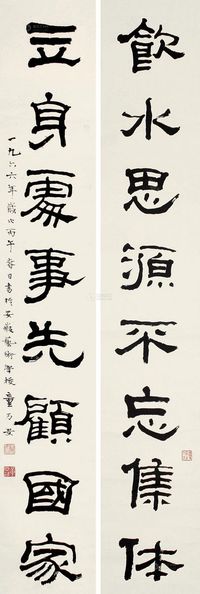 飲水思源不忘集体
立身處事先顧國家
一九六六年歲次丙午春日書於安徽藝術學校 童乃安